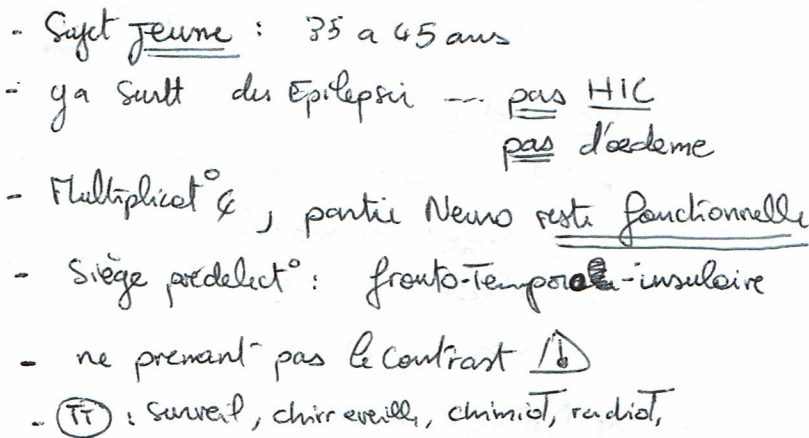 - Sujet jeune : 35 a 45 ans
- ya surtt des Epilepsie --- pas HIC
pas d'oedeme
- Multiplicat° ¢, partie Neuro reste fonctionnelle
- Siège prédelect° : fronto-Temporal-insulaire
- ne prenant pas le contrast ⚠
- (TT) : surveil, chirr eveillé, chimioT, radioT,